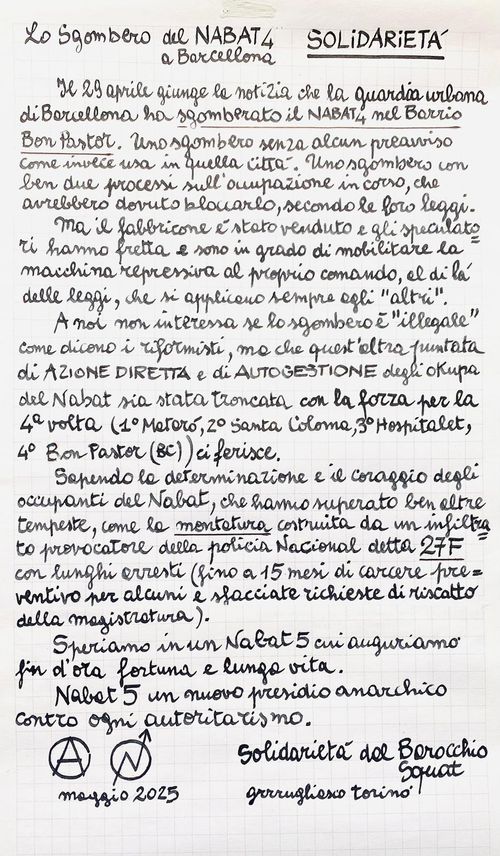 Lo Sgombero del NABAT4 SOLIDARIETÁ
a Barcellona
Il 29 aprile giunge la notizia che la guardia urbana
di Barcellona ha sgomberato il NABAT4 nel Barrio
Bon Pastor. Uno sgombero senza alcun preavviso
come invece usa in quella città. Uno sgombero con
ben due processi sull'occupazione in corso, che
avrebbero dovuto bloccarlo, secondo le loro leggi.
Ma il fabbricone è stato venduto e gli speculato=
ri hanno fretta e sono in grado di mobilitare la
macchina repressiva al proprio comando, al di là
delle leggi, che si applicano sempre agli "altri".
A noi non interessa se lo sgombero è "illegale"
come dicono i riformisti, ma che quest'altra puntata
di AZIONE DIRETTA e di AUTOGESTIONE degli okupa
del Nabat sia stata troncata con la forza per la
4ª volta (1º Mataró, 2º Santa Coloma, 3º Hospitalet,
4º Bon Pastor (BC)) ci ferisce.
Sapendo la determinazione e il coraggio degli
occupanti del Nabat, che hanno superato ben altre
tempeste, come la montatura costruita da un infiltra=
to provocatore della policia Nacional detta 27F
con lunghi arresti (fino a 15 mesi di carcere pre=
ventivo per alcuni e sfacciate richieste di riscatto
della magistratura).
Speriamo in un Nabat 5 cui auguriamo
fin d'ora fortuna e lunga vita.
Nabat 5 un nuovo presidio anarchico
contro ogni autoritarismo.
A N Solidarietá dal Barocchio
Squat
maggio 2025 grrrugliasco torino